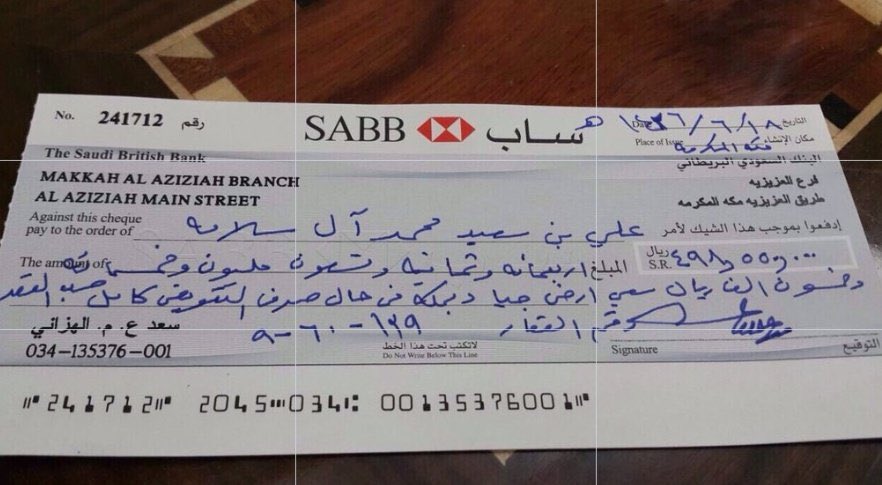 No. 241712 رقم
SABB ساب
التاريخ Date ١٤٣٦/٦/١٨ هـ
مكان الإنشاء Place of Issue مكة المكرمة
The Saudi British Bank
البنك السعودي البريطاني
MAKKAH AL AZIZIAH BRANCH
فرع العزيزيه
AL AZIZIAH MAIN STREET
طريق العزيزيه مكه المكرمه
Against this cheque
pay to the order of علي بن سعيد محمد آل سلامه إدفعوا بموجب هذا الشيك لأمر
The amount of المبلغ اربعمائه وثمانية وتسعون مليون وخمسمائة
ريال
S.R.
وخمسون الف ريال سعي ارض جبا في حال صرف التعويض كامل حسب العقد
رقم العقار ١٦٩-٦٠-٩
سعد ع. م. الهزاني
034-135376-001
لاتكتب تحت هذا الخط
Do Not Write Below This Line
Signature التوقيع
⑈241712⑈ 2045⑉034⑆ 00135376001⑈